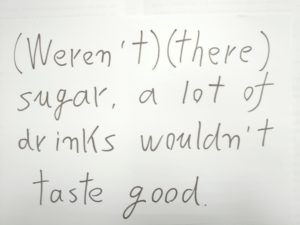 (Weren't)(there)
sugar, a lot of
drinks wouldn't
taste good.